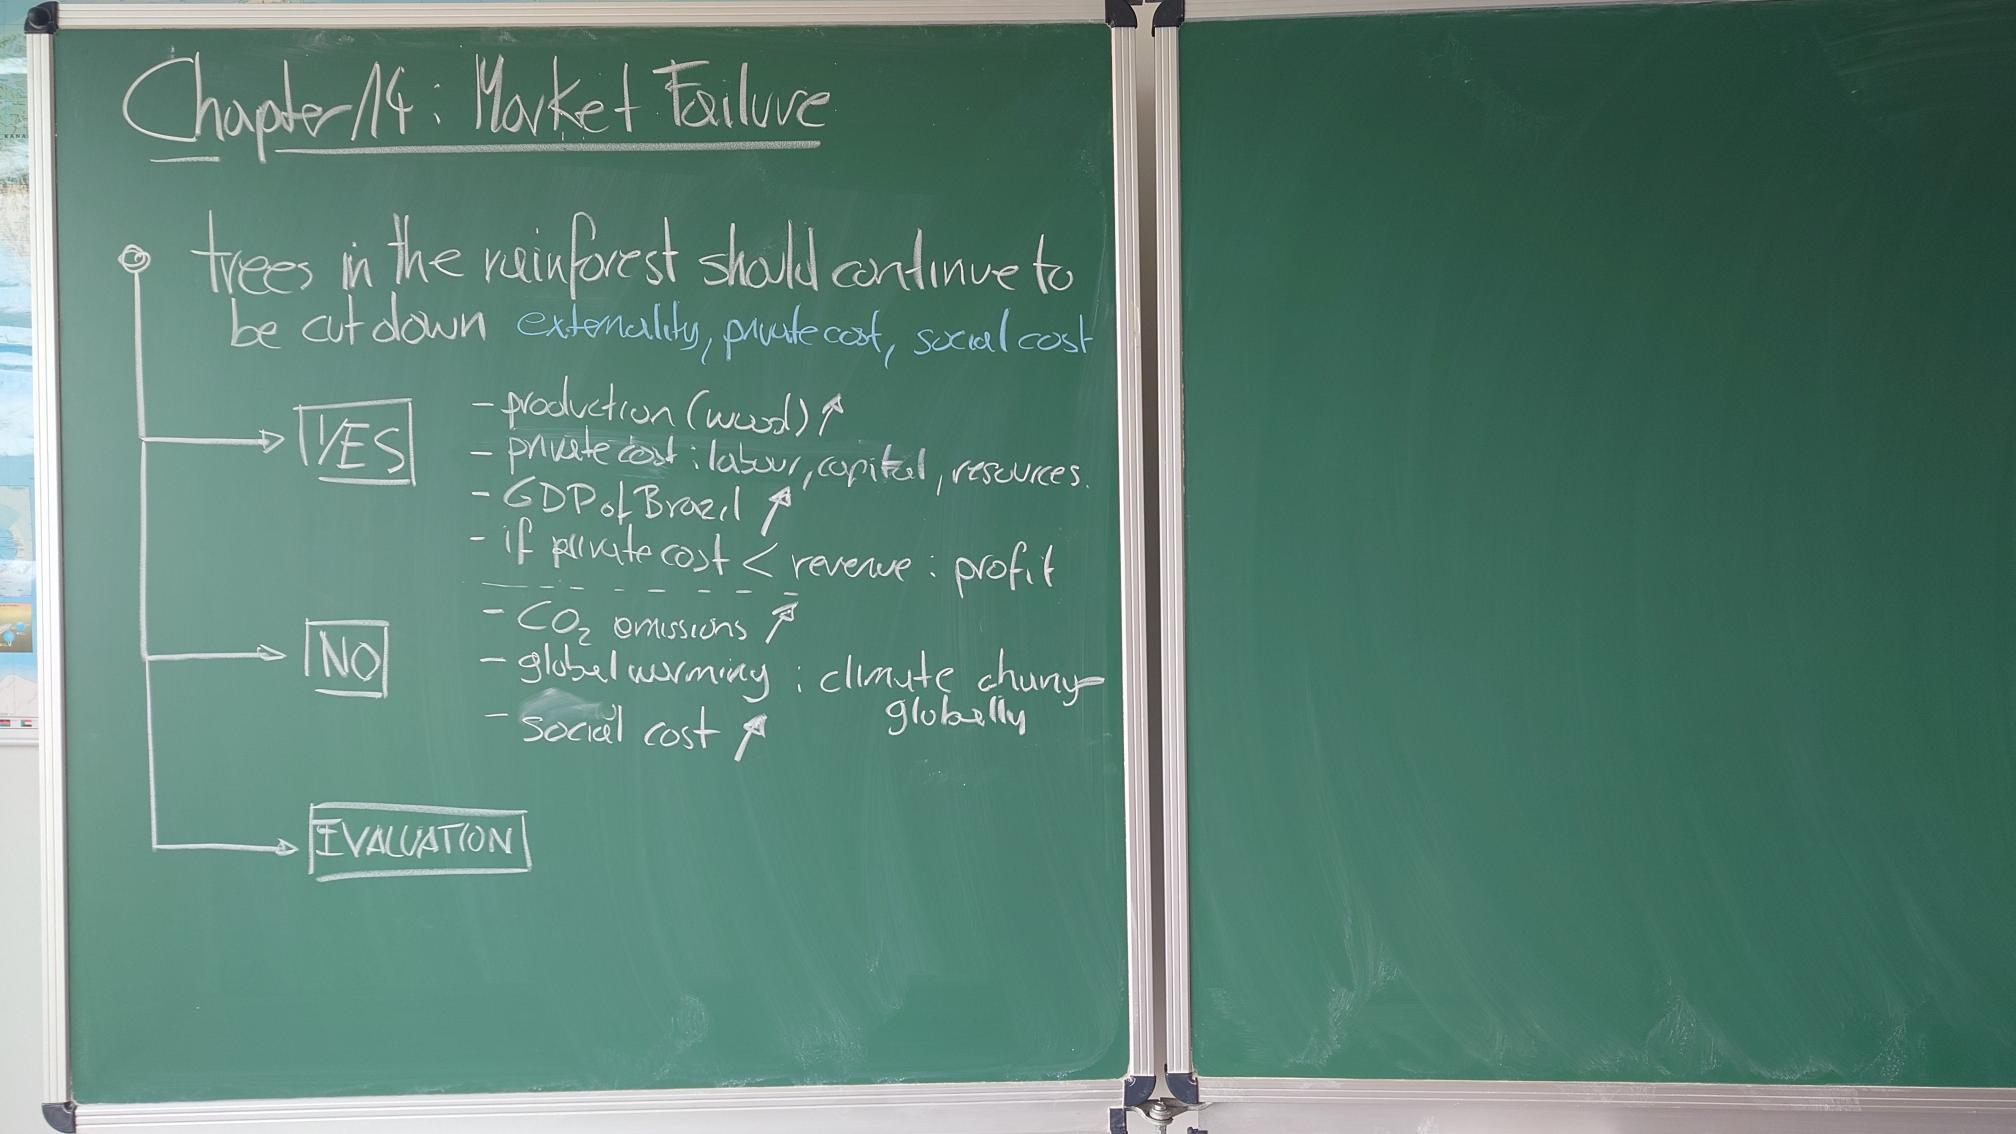 Chapter 14: Market Failure
trees in the rainforest should continue to
be cut down externality, private cost, social cost
YES
- production (wood) ↗
- private cost: labour, capital, resources.
- GDP of Brazil ↗
- if private cost < revenue: profit
NO
- CO₂ emissions ↗
- global warming: climate chang
globally
- social cost ↗
EVALUATION